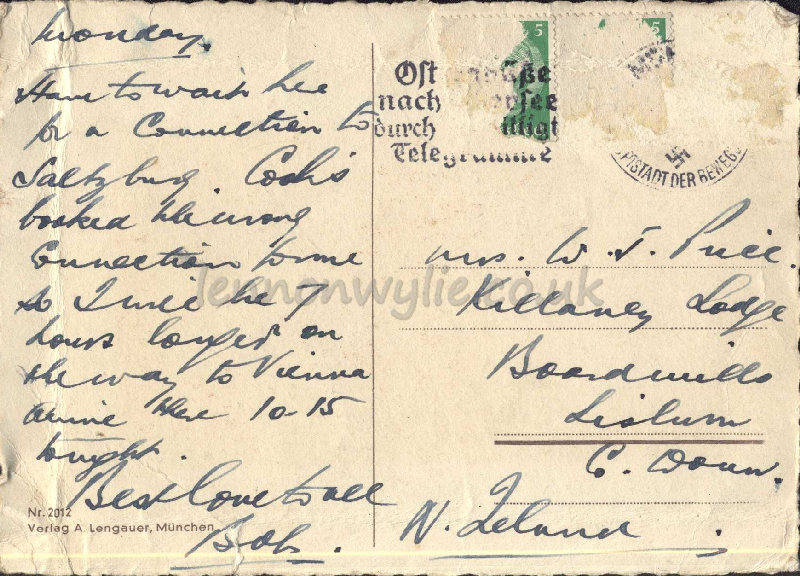 Monday.
Have to wait here
for a Connection to
Saltzburg. Cook's
booked the wrong
Connection for me
so I will be 7
hours longer on
the way to Vienna
arrive there 10-15
tonight.
Best love to all
Bob.
Nr. 2012
Verlag A. Lengauer, München
5
5
Ostergrüße
nach Übersee
durch billigt
Telegramme
PTSTADT DER BEWEG
Mrs. W. J. Price.
Killaney Lodge
Boardmills
Lisburn
C. Down.
N. Ireland
Jennonwylie.co.uk